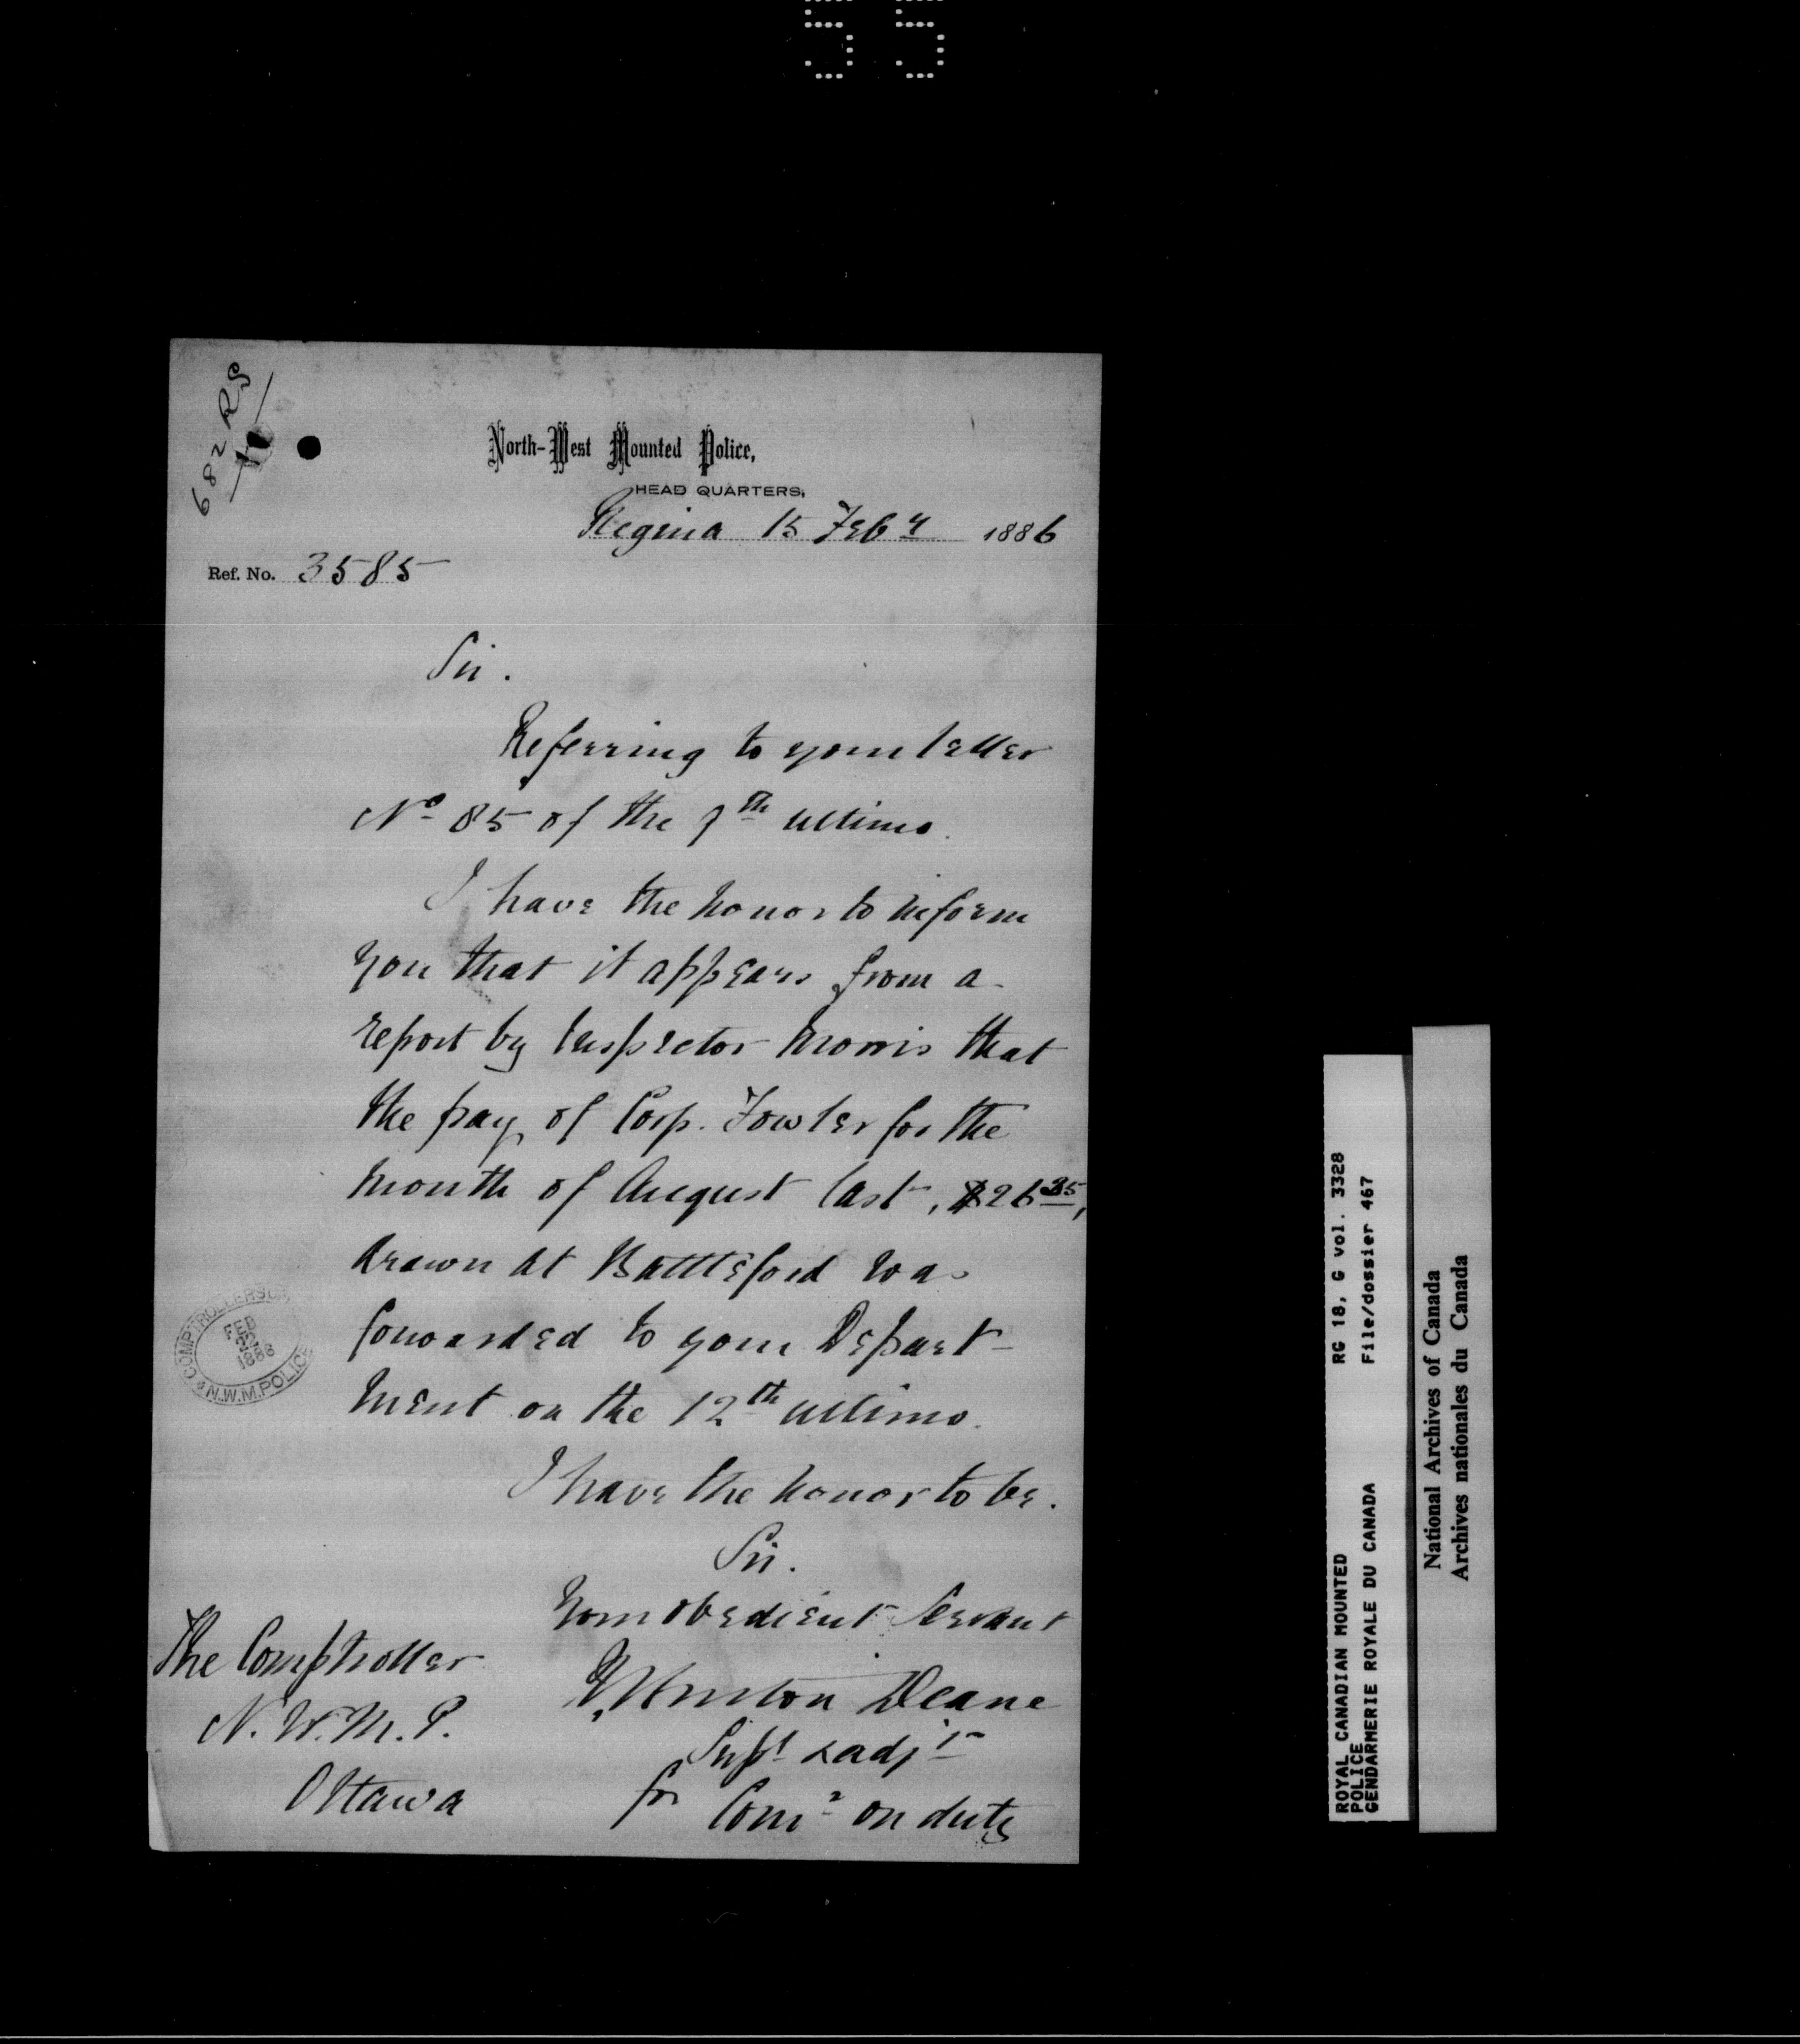 55
682 RS
North-West Mounted Police,
HEAD QUARTERS,
Regina 15 Feby 1886
Ref. No. 3585
Sir.
Referring to your letter
No 85 of the 9th ultimo.
I have the honor to inform
you that it appears from a
report by Inspector Morris that
the pay of Corp. Fowler for the
month of August last, $26.35,
drawn at Battleford was
forwarded to your Depart-
ment on the 12th ultimo.
I have the honor to be.
Sir.
Your obedient Servant
Burton Deane
Supt & adjt
for Comr on duty
The Comptroller
N.W.M.P.
Ottawa
COMPTROLLERS
FEB
1886
N.W.M.POLICE
ROYAL CANADIAN MOUNTED RG 18, G vol. 3328
POLICE File/dossier 467
GENDARMERIE ROYALE DU CANADA
National Archives of Canada
Archives nationales du Canada